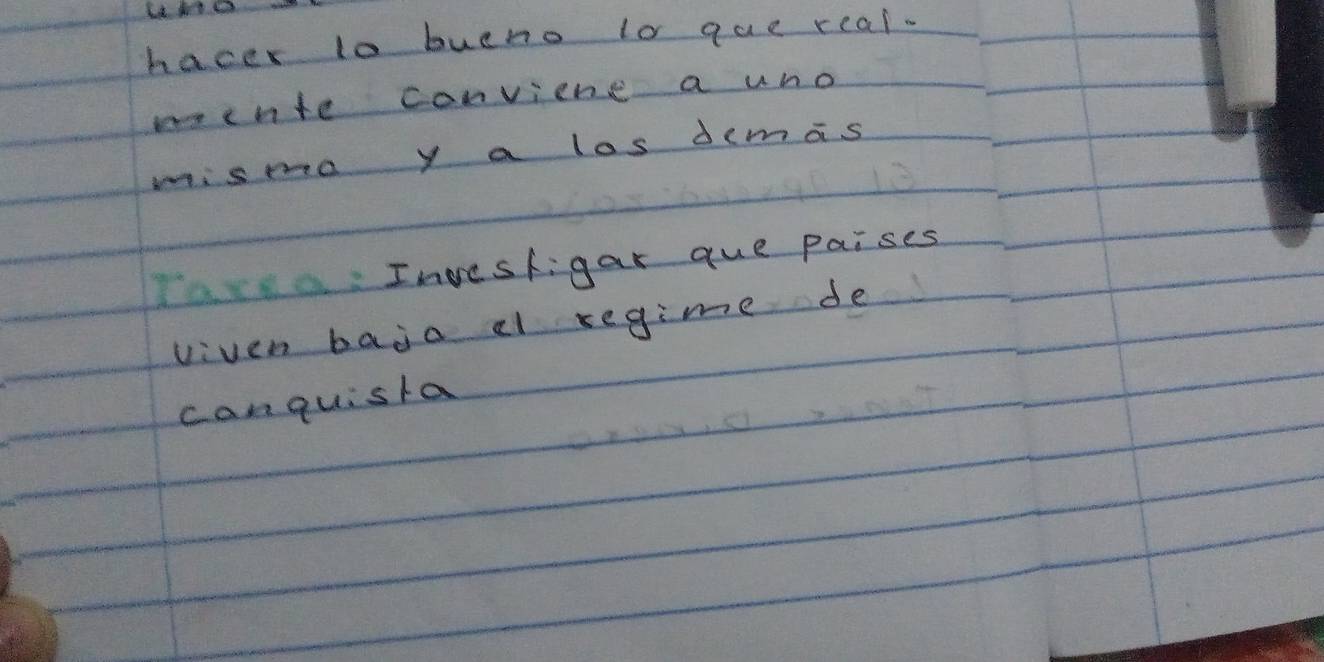 uno
hacer lo bueno lo que real-
mente conviene a uno
mismo y a los demás
Tarea: Investigar que paises
viven bajo el regime de
conquista